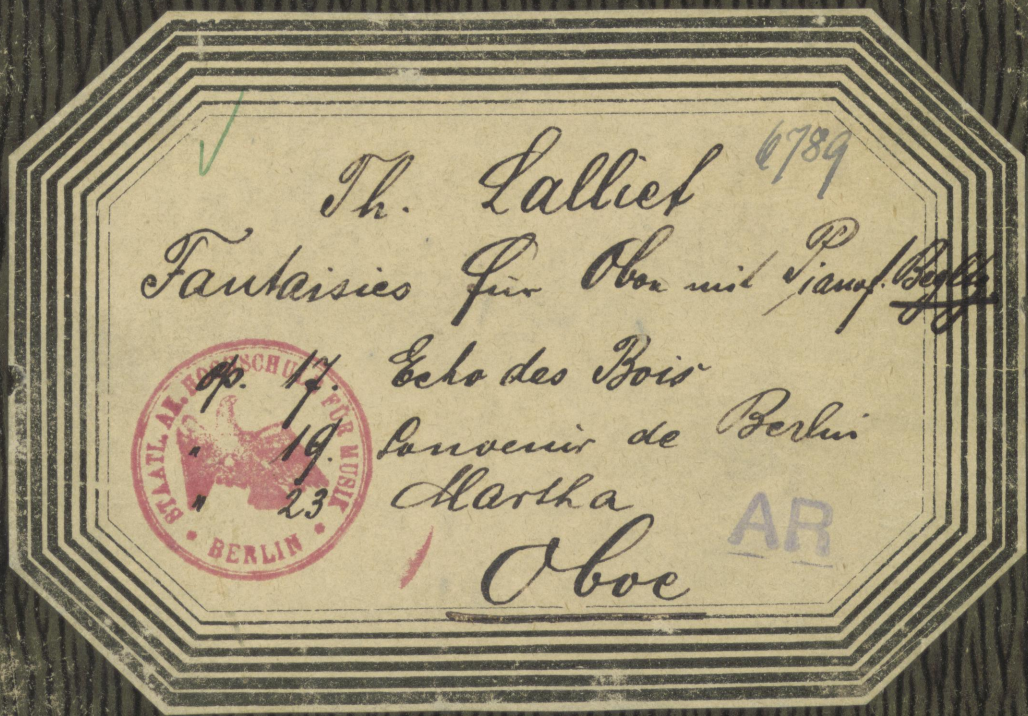 6789
Th. Lalliet
Fantaisies für Oboe mit Pianof. Begltg.
op. 17. Echo des Bois
" 19. Souvenir de Berlin
" 23 Martha
Oboe
STAATL. AK. HOCHSCHULE FÜR MUSIK
BERLIN
AR